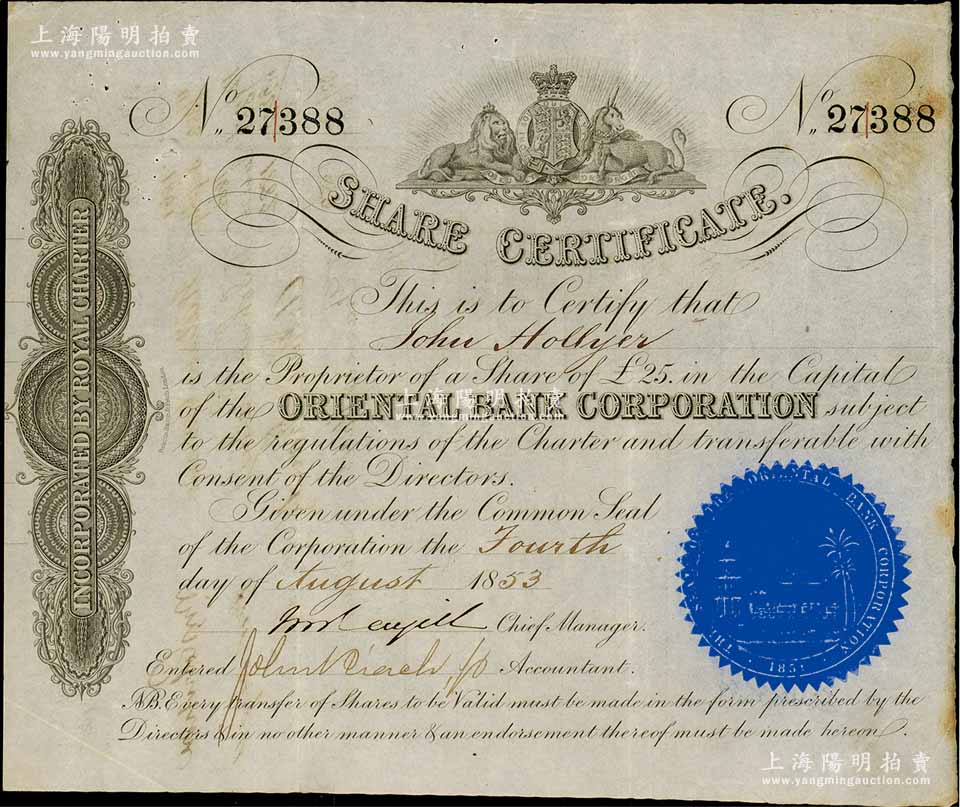 上海陽明拍賣
www.yangmingauction.com
No. 27388
No. 27388
SHARE CERTIFICATE.
INCORPORATED BY ROYAL CHARTER
This is to Certify that
John Hollyer
is the Proprietor of a Share of £25. in the Capital
of the ORIENTAL BANK CORPORATION subject
to the regulations of the Charter and transferable with
Consent of the Directors.
上海陽明拍賣
www.yangmingauction.com
Given under the Common Seal
of the Corporation the Fourth
day of August 1853
Chief Manager.
Entered John Accountant.
THE ORIENTAL BANK CORPORATION
1851
NB. Every transfer of Shares to be Valid must be made in the form prescribed by the
Directors & in no other manner & an endorsement thereof must be made hereon.
上海陽明拍賣
www.yangmingauction.com